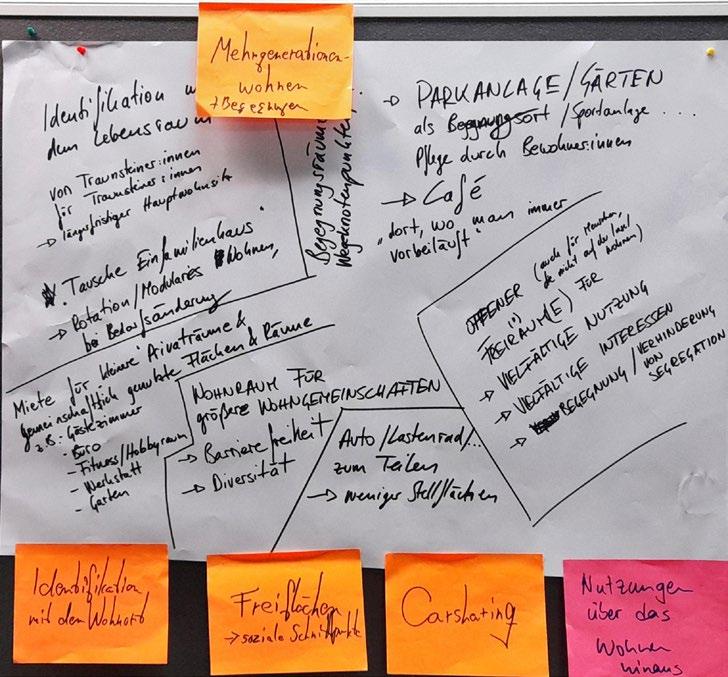 Mehrgenerationen-
wohnen
+ Begegnungen
Identifikation
dem Lebensraum
von Traunsteiner:innen
für Traunsteiner:innen
→ längerfristiger Hauptwohnsitz
"Tausche Einfamilienhaus"
→ Rotation/Modulares Wohnen,
bei Bedarfsänderung
Begegnungsräume
Wegknotenpunkten
→ PARKANLAGE/GÄRTEN
als Begegnungsort/Sportanlage ....
Pflege durch Bewohner:innen
→ Café
"dort, wo man immer
vorbeiläuft"
OFFENER (auch für Menschen,
die nicht auf der Insel
wohnen)
(!)
FREIRAUM(E) FÜR
→ VIELFÄLTIGE NUTZUNG
→ VIELFÄLTIGE INTERESSEN
→ BEGEGNUNG/VERHINDERUNG
VON
SEGREGATION
Miete für kleine Privaträume &
gemeinschaftlich genutzte Flächen & Räume
z.B. - Gästezimmer
- Büro
- Fitness/Hobbyraum
- Werkstatt
- Garten
WOHNRAUM FÜR
größere WOHNGEMEINSCHAFTEN
→ Barrierefreiheit
→ Diversität
Auto/Lastenrad/...
zum Teilen
→ weniger Stellflächen
Identifikation
mit dem Wohnort
Freiflächen
→ soziale Schnittpunkte
Carsharing
Nutzungen
über das
Wohnen
hinaus